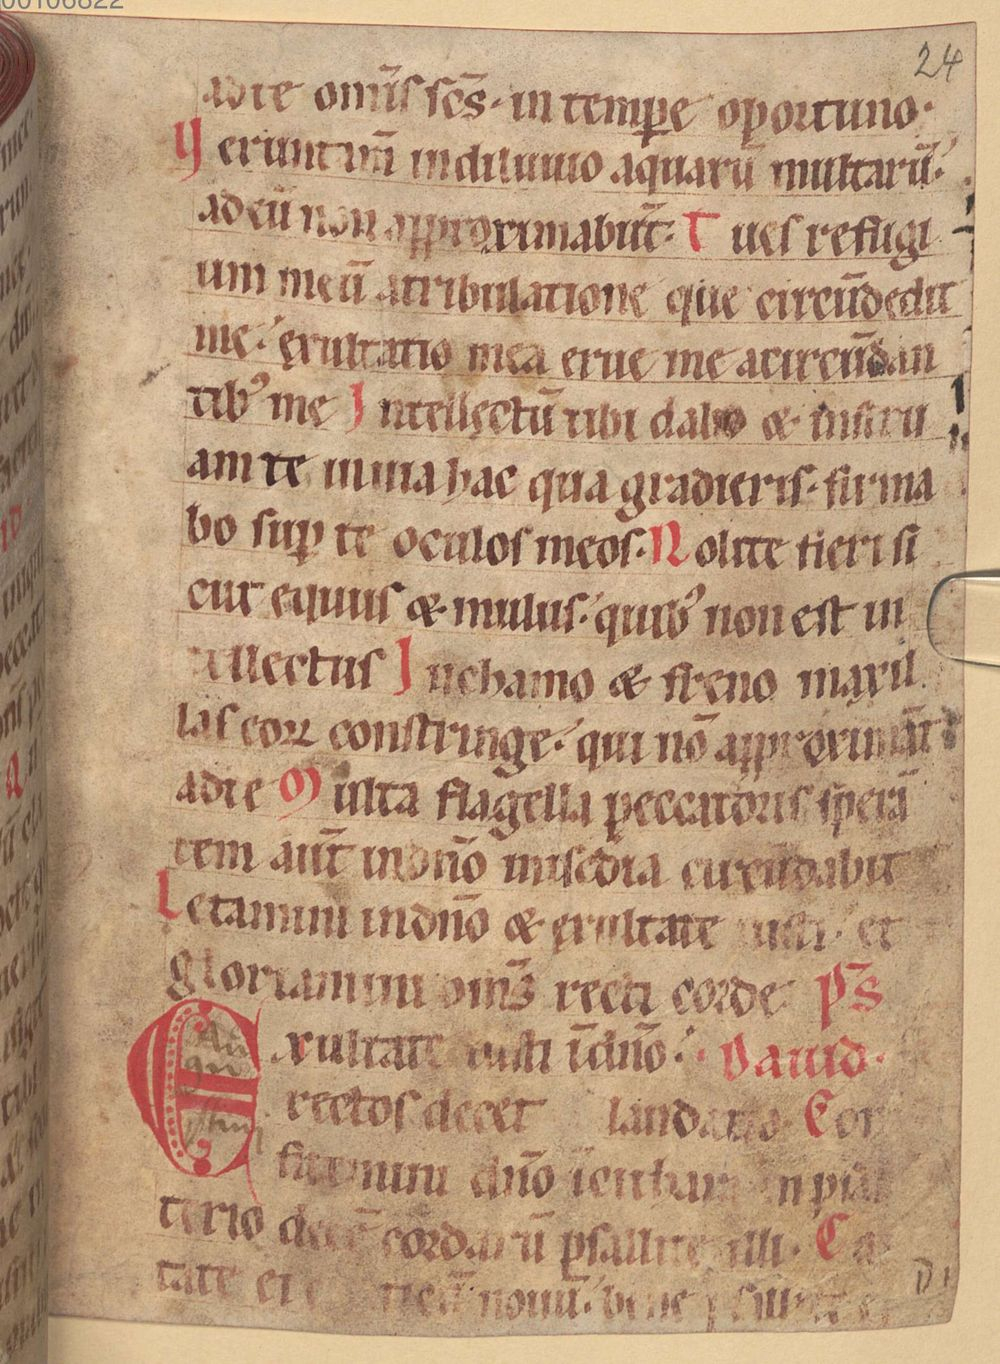 00106822
24
adte omīs sc̄s· in tempe oportuno·
V eruntm̄ in diluuio aquarū multarū·
ad eū non approximabūt· T u es refugi
um meū a tribulatione que circūdedit
me· exultatio mea erue me a circūdan
tib᷒ me I ntellectū tibi dabo & instru
am te in uia hac qua gradieris· firma
bo sup te oculos meos· N olite fieri si
cut equus & mulus· quib᷒ non est in
tellectus I n chamo & freno maxil
las eoꝝ constringe· qui nō approximāt
adte M ulta flagella peccatoris sperā
tem aūt in dn̄o mis̄cdia circūdabit
L etamini in dn̄o & exultate iusti· et
gloriamini om̄s recti corde Ps̄
E xultate iusti ī dn̄o· · Dauid·
rectos decet laudatio· Con
fitemini dn̄o ī cithara in psal
terio decē cordarū psallite illi· Ca
tate ei cāticū nouū· bene psallite ei